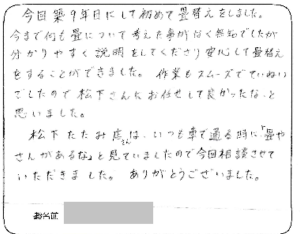 今回築9年目にして初めて畳替えをしました。
今まで何も畳について考えた事がなく無知でしたが
分かりやすく説明をしてくださり安心して畳替え
をすることができました。作業もスムーズでていねい
でしたので松下さんにお任せして良かったな、と
思いました。
松下たたみ店さんは、いつも車で通る時に「畳や
さんがあるな」と見ていましたので今回相談させて
いただきました。ありがとうございました。
お名前